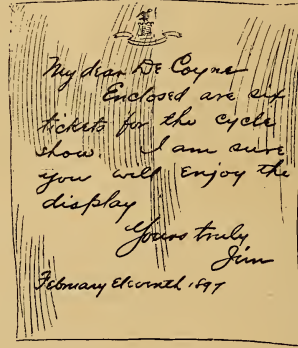 My dear De Coyne
Enclosed are six
tickets for the cycle
show. I am sure
you will enjoy the
display
Yours truly
Jim
February Eleventh 1897